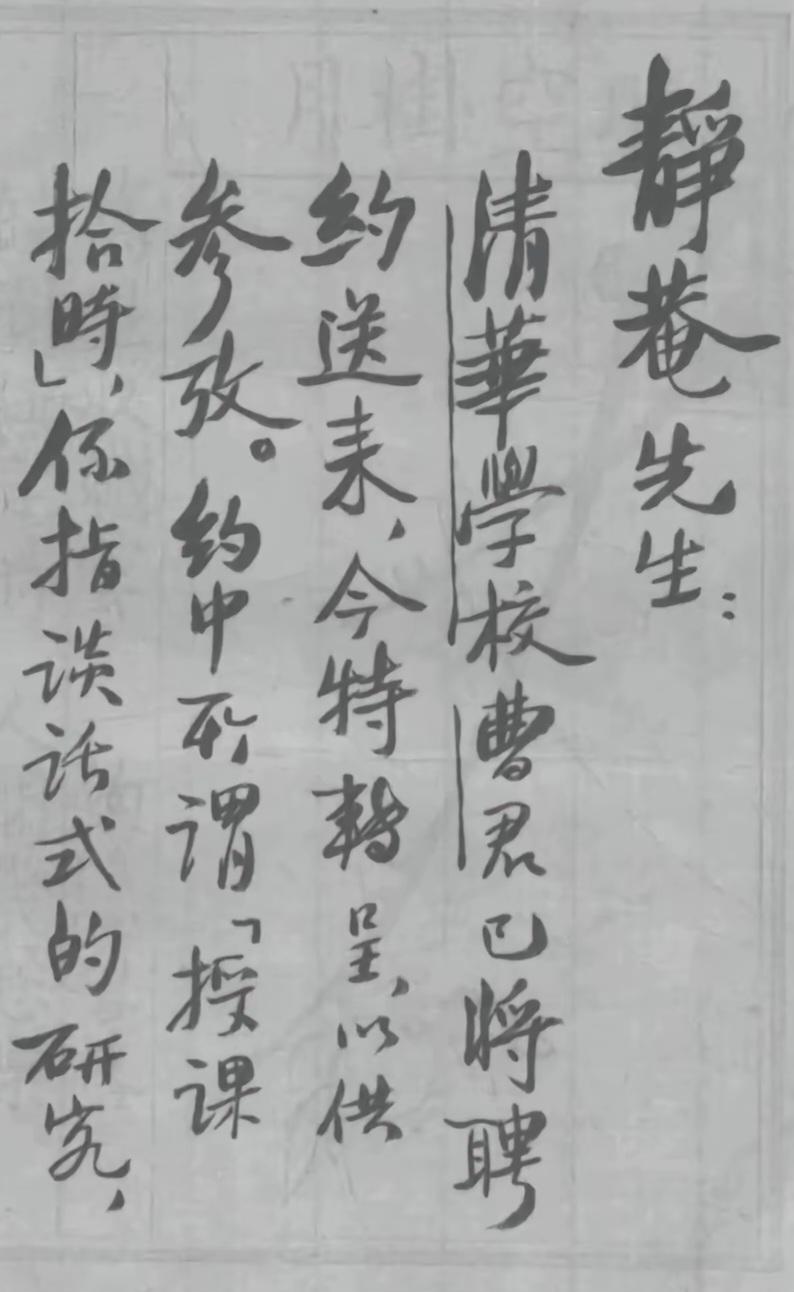 靜菴先生：
清華學校曹君已將聘
約送来，今特轉呈，以供
参攷。約中所謂「授課
拾時」，係指談話式的研究，